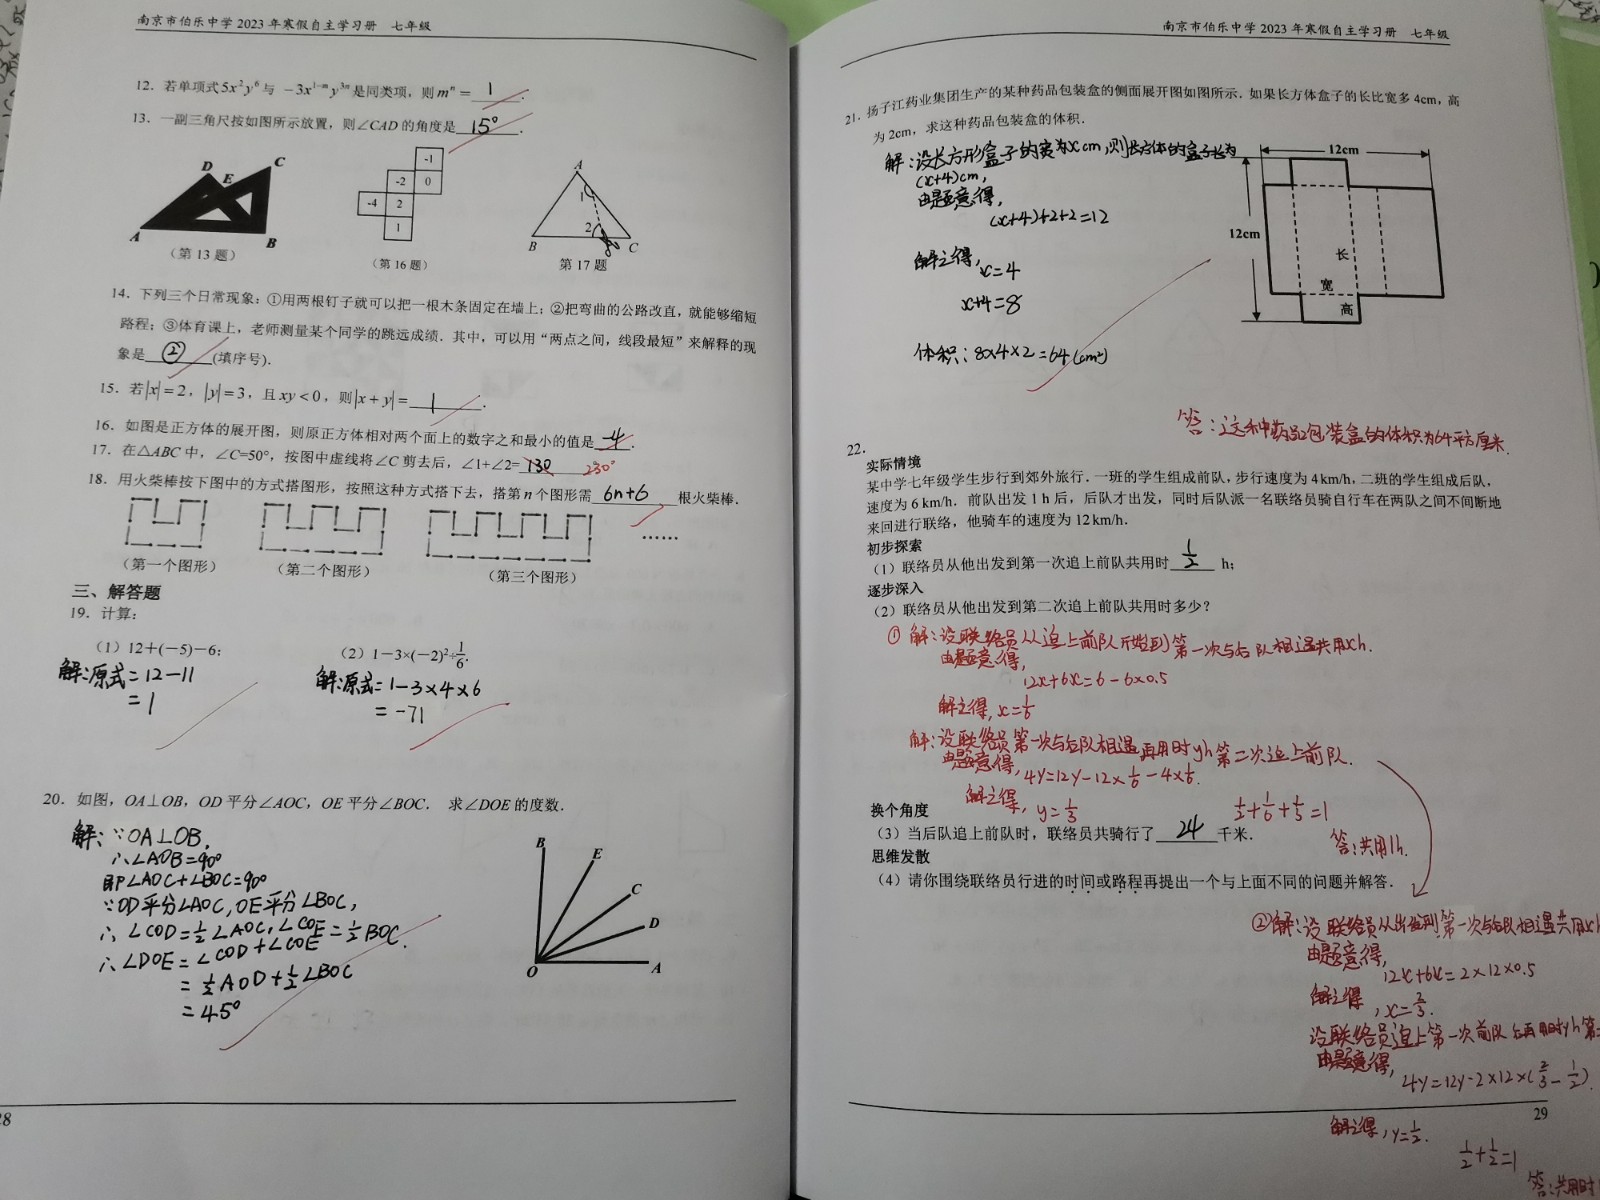 南京市伯乐中学 2023 年寒假自主学习册 七年级
12. 若单项式5x²y⁶与 -3x¹⁻ᵐy³ⁿ是同类项，则mⁿ = 1 .
13. 一副三角尺按如图所示放置，则∠CAD的角度是 15° .
D E C
A B
(第13题)
-1
-2 0
-4 2
1
(第16题)
A
1
2
B C
第17题
14. 下列三个日常现象：①用两根钉子就可以把一根木条固定在墙上；②把弯曲的公路改直，就能够缩短
路程；③体育课上，老师测量某个同学的跳远成绩．其中，可以用“两点之间，线段最短”来解释的现
象是 ② (填序号).
15. 若|x|=2，|y|=3，且xy<0，则|x+y|= 1 .
16. 如图是正方体的展开图，则原正方体相对两个面上的数字之和最小的值是 -4 .
17. 在△ABC中，∠C=50°，按图中虚线将∠C剪去后，∠1+∠2= 130 230°
18. 用火柴棒按下图中的方式搭图形，按照这种方式搭下去，搭第n个图形需 6n+6 根火柴棒.
……
(第一个图形) (第二个图形) (第三个图形)
三、解答题
19. 计算：
(1) 12+(-5)-6; (2) 1-3×(-2)²÷1/6.
解:原式=12-11
=1
解:原式=1-3×4×6
=-71
20. 如图，OA⊥OB，OD平分∠AOC，OE平分∠BOC. 求∠DOE的度数.
解:∵OA⊥OB,
∴∠AOB=90°
即∠AOC+∠BOC=90°
∵OD平分∠AOC,OE平分∠BOC,
∴∠COD=1/2∠AOC,∠COE=1/2BOC.
∴∠DOE=∠COD+∠COE
=1/2AOD+1/2∠BOC
=45°
B E C D
O A
28
南京市伯乐中学 2023 年寒假自主学习册 七年级
21. 扬子江药业集团生产的某种药品包装盒的侧面展开图如图所示．如果长方体盒子的长比宽多4cm，高
为2cm，求这种药品包装盒的体积.
解:设长方形盒子的宽为xcm,则长方体的盒子长为
(x+4)cm,
由题意得,
(x+4)+2+2=12
解之得,
x=4
x+4=8
体积:8×4×2=64(cm²)
12cm
12cm
长
宽
高
答:这种药品包装盒的体积为64平方厘米.
22.
实际情境
某中学七年级学生步行到郊外旅行．一班的学生组成前队，步行速度为4km/h，二班的学生组成后队，
速度为6 km/h．前队出发1 h后，后队才出发，同时后队派一名联络员骑自行车在两队之间不间断地
来回进行联络，他骑车的速度为12km/h.
初步探索
(1) 联络员从他出发到第一次追上前队共用时 1/2 h;
逐步深入
(2) 联络员从他出发到第二次追上前队共用时多少?
①解:设联络员从追上前队开始到第一次与后队相遇共用xh.
由题意得,
12x+6x=6-6×0.5
解之得,x=1/6
解:设联络员第一次与后队相遇再用时yh第二次追上前队.
由题意得,4y=12y-12×1/6-4×1/6.
解之得,y=1/3
1/2+1/6+1/3=1
答:共用1h.
换个角度
(3) 当后队追上前队时，联络员共骑行了 24 千米.
思维发散
(4) 请你围绕联络员行进的时间或路程再提出一个与上面不同的问题并解答.
②解:设联络员从出发到第一次与后队相遇共用xh
由题意得,
12x+6x=2×12×0.5
解之得,x=2/3.
设联络员追上第一次前队后再用时yh第
由题意得,
4y=12y-2×12×(2/3-1/2).
29
解之得,y=1/2.
1/2+1/2=1
答:共用时